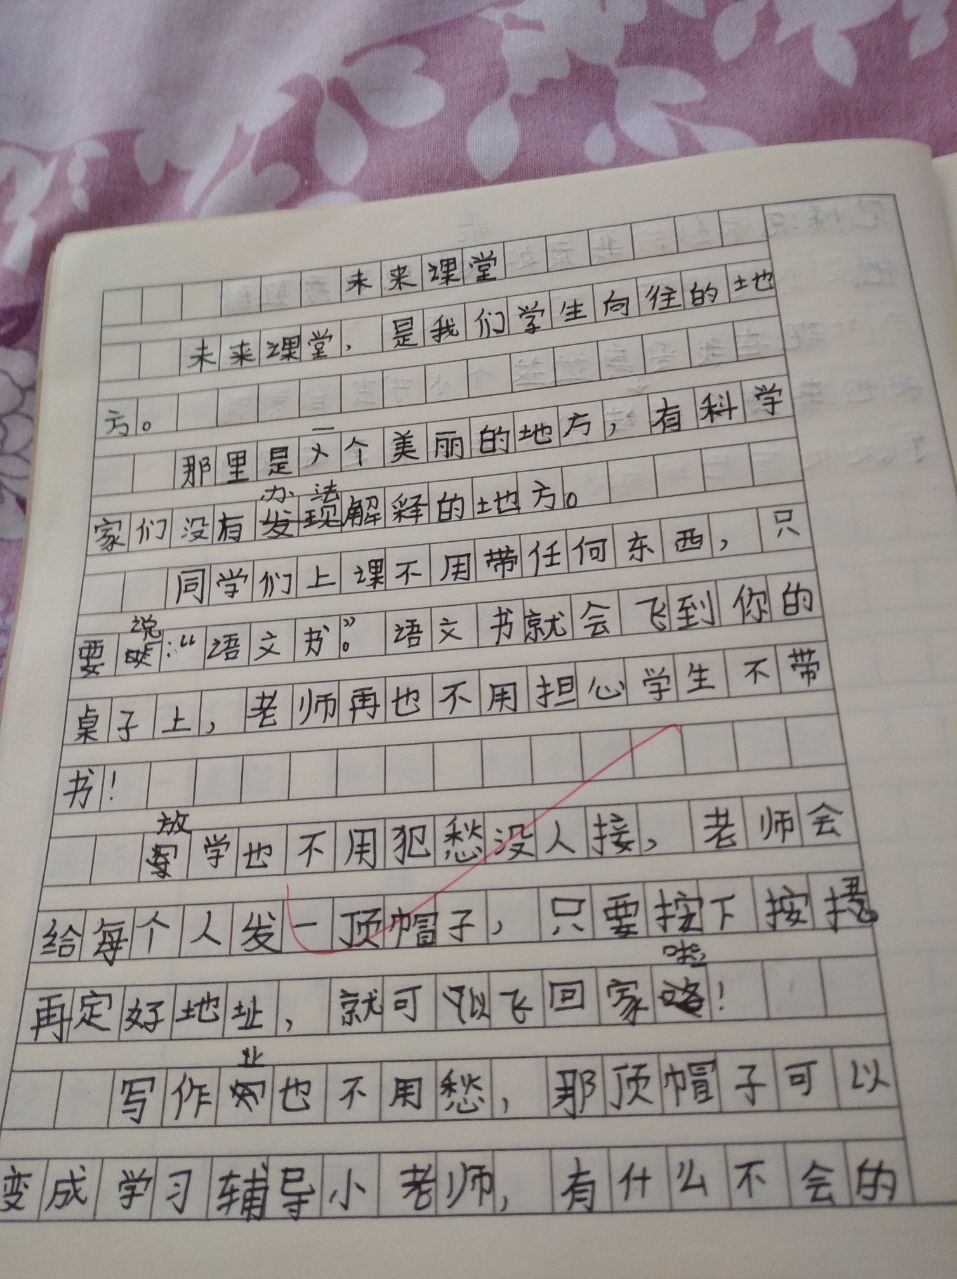 未来课堂
未来课堂，是我们学生向往的地
方。
那里是一个美丽的地方，有科学
家们没有办法解释的地方。
同学们上课不用带任何东西，只
要说：“语文书。”语文书就会飞到你的
桌子上，老师再也不用担心学生不带
书！
放学也不用犯愁没人接，老师会
给每个人发一顶帽子，只要按下按揌
再定好地址，就可以飞回家啦！
写作业也不用愁，那顶帽子可以
变成学习辅导小老师，有什么不会的